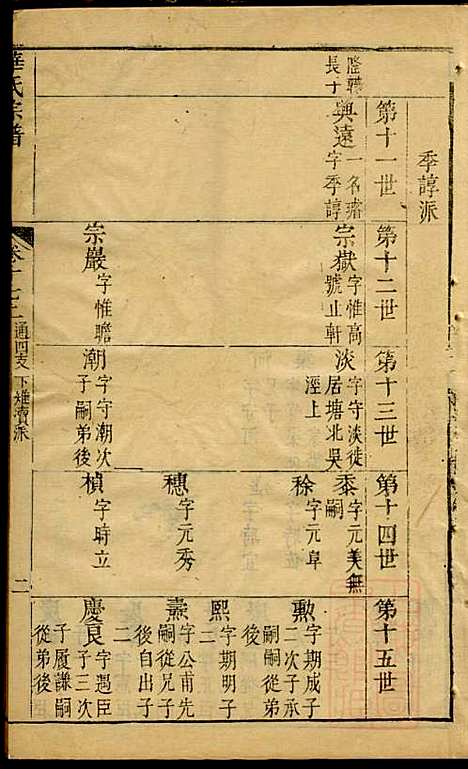 季諄派
第十一世
第十二世
第十三世
第十四世
第十五世
長子
興遠 一名瑃 字季諄
宗嶽 字惟高 號止軒
淡 字守淡徙 居塘北吳 涇上
黍 字元美無 嗣
稌 字元阜
勲 字期成子 二次子承 嗣從弟後
熙 字期明子 二
穗 字元秀
燾 字公甫先 嗣從兄子 後自出子 二
宗嚴 字惟瞻
潮 字守潮次 子嗣弟後
楨 字時立
慶良 字遇臣 子三次 子厦謙嗣 從弟後
華氏宗譜
卷十之二 通四支下雉瀆派
二